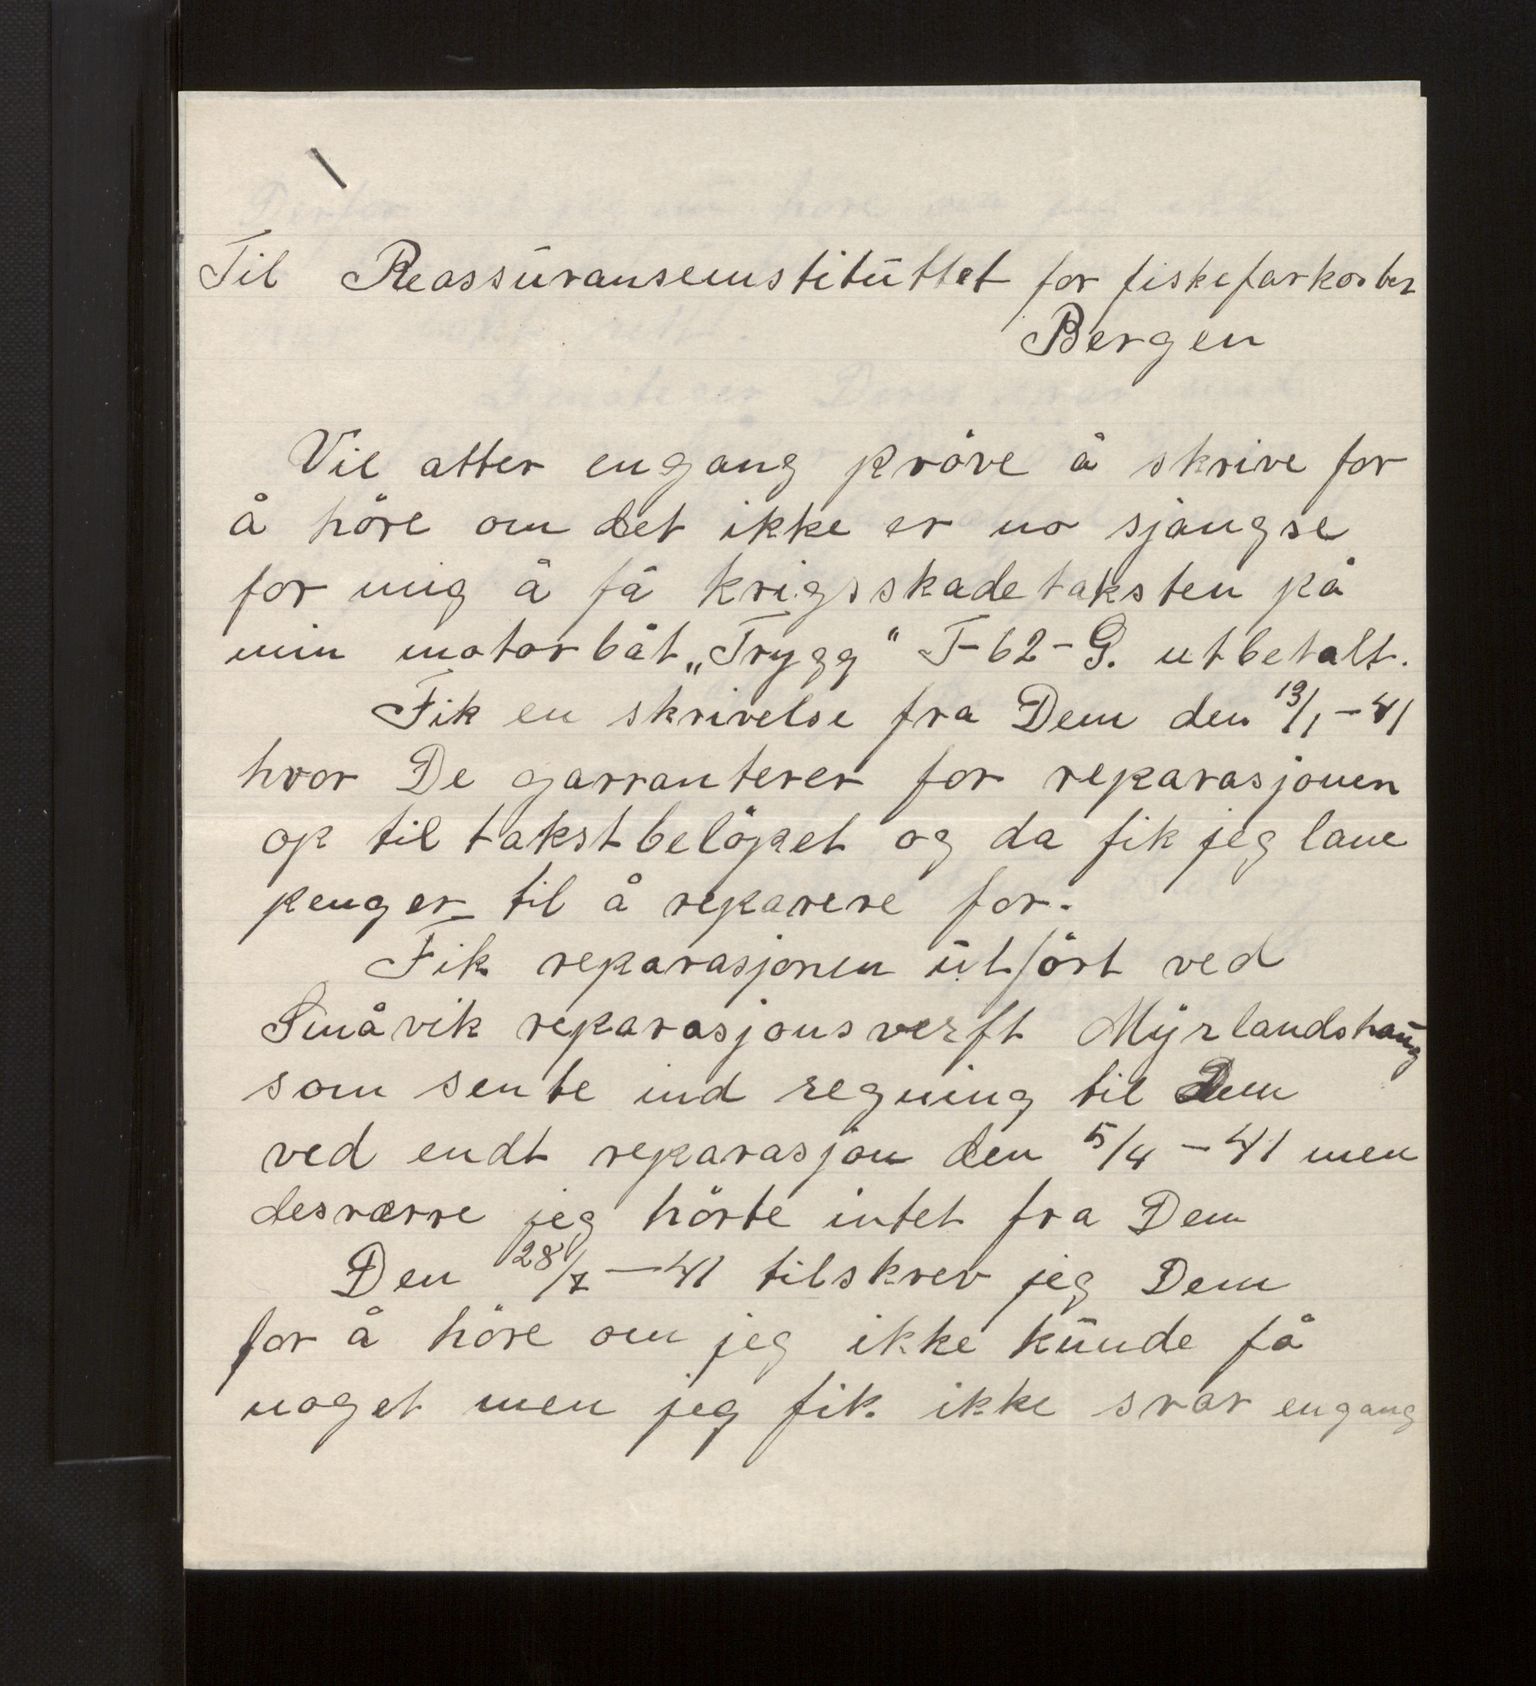 Til Reassuranseinstituttet for fiskefarkoster
Bergen
Vil atter engang pröve å skrive for
å höre om det ikke er no sjangse
for mig å få krigsskadetaksten på
min motorbåt „Trygg“ T-62-G. utbetalt.
Fik en skrivelse fra Dem den 13/1-41
hvor De garranterer for reparasjonen
op til takstbelöpet og da fik jeg lane
penger til å reparere for.
Fik reparasjonen utfört ved
Småvik reparasjonsverft Myrlandshaug
som sente ind regning til Dem
ved endt reparasjon den 5/4-41 men
desværre jeg hörte intet fra Dem
Den 28/7-41 tilskrev jeg Dem
for å höre om jeg ikke kunde få
noget men jeg fik ikke svar engang